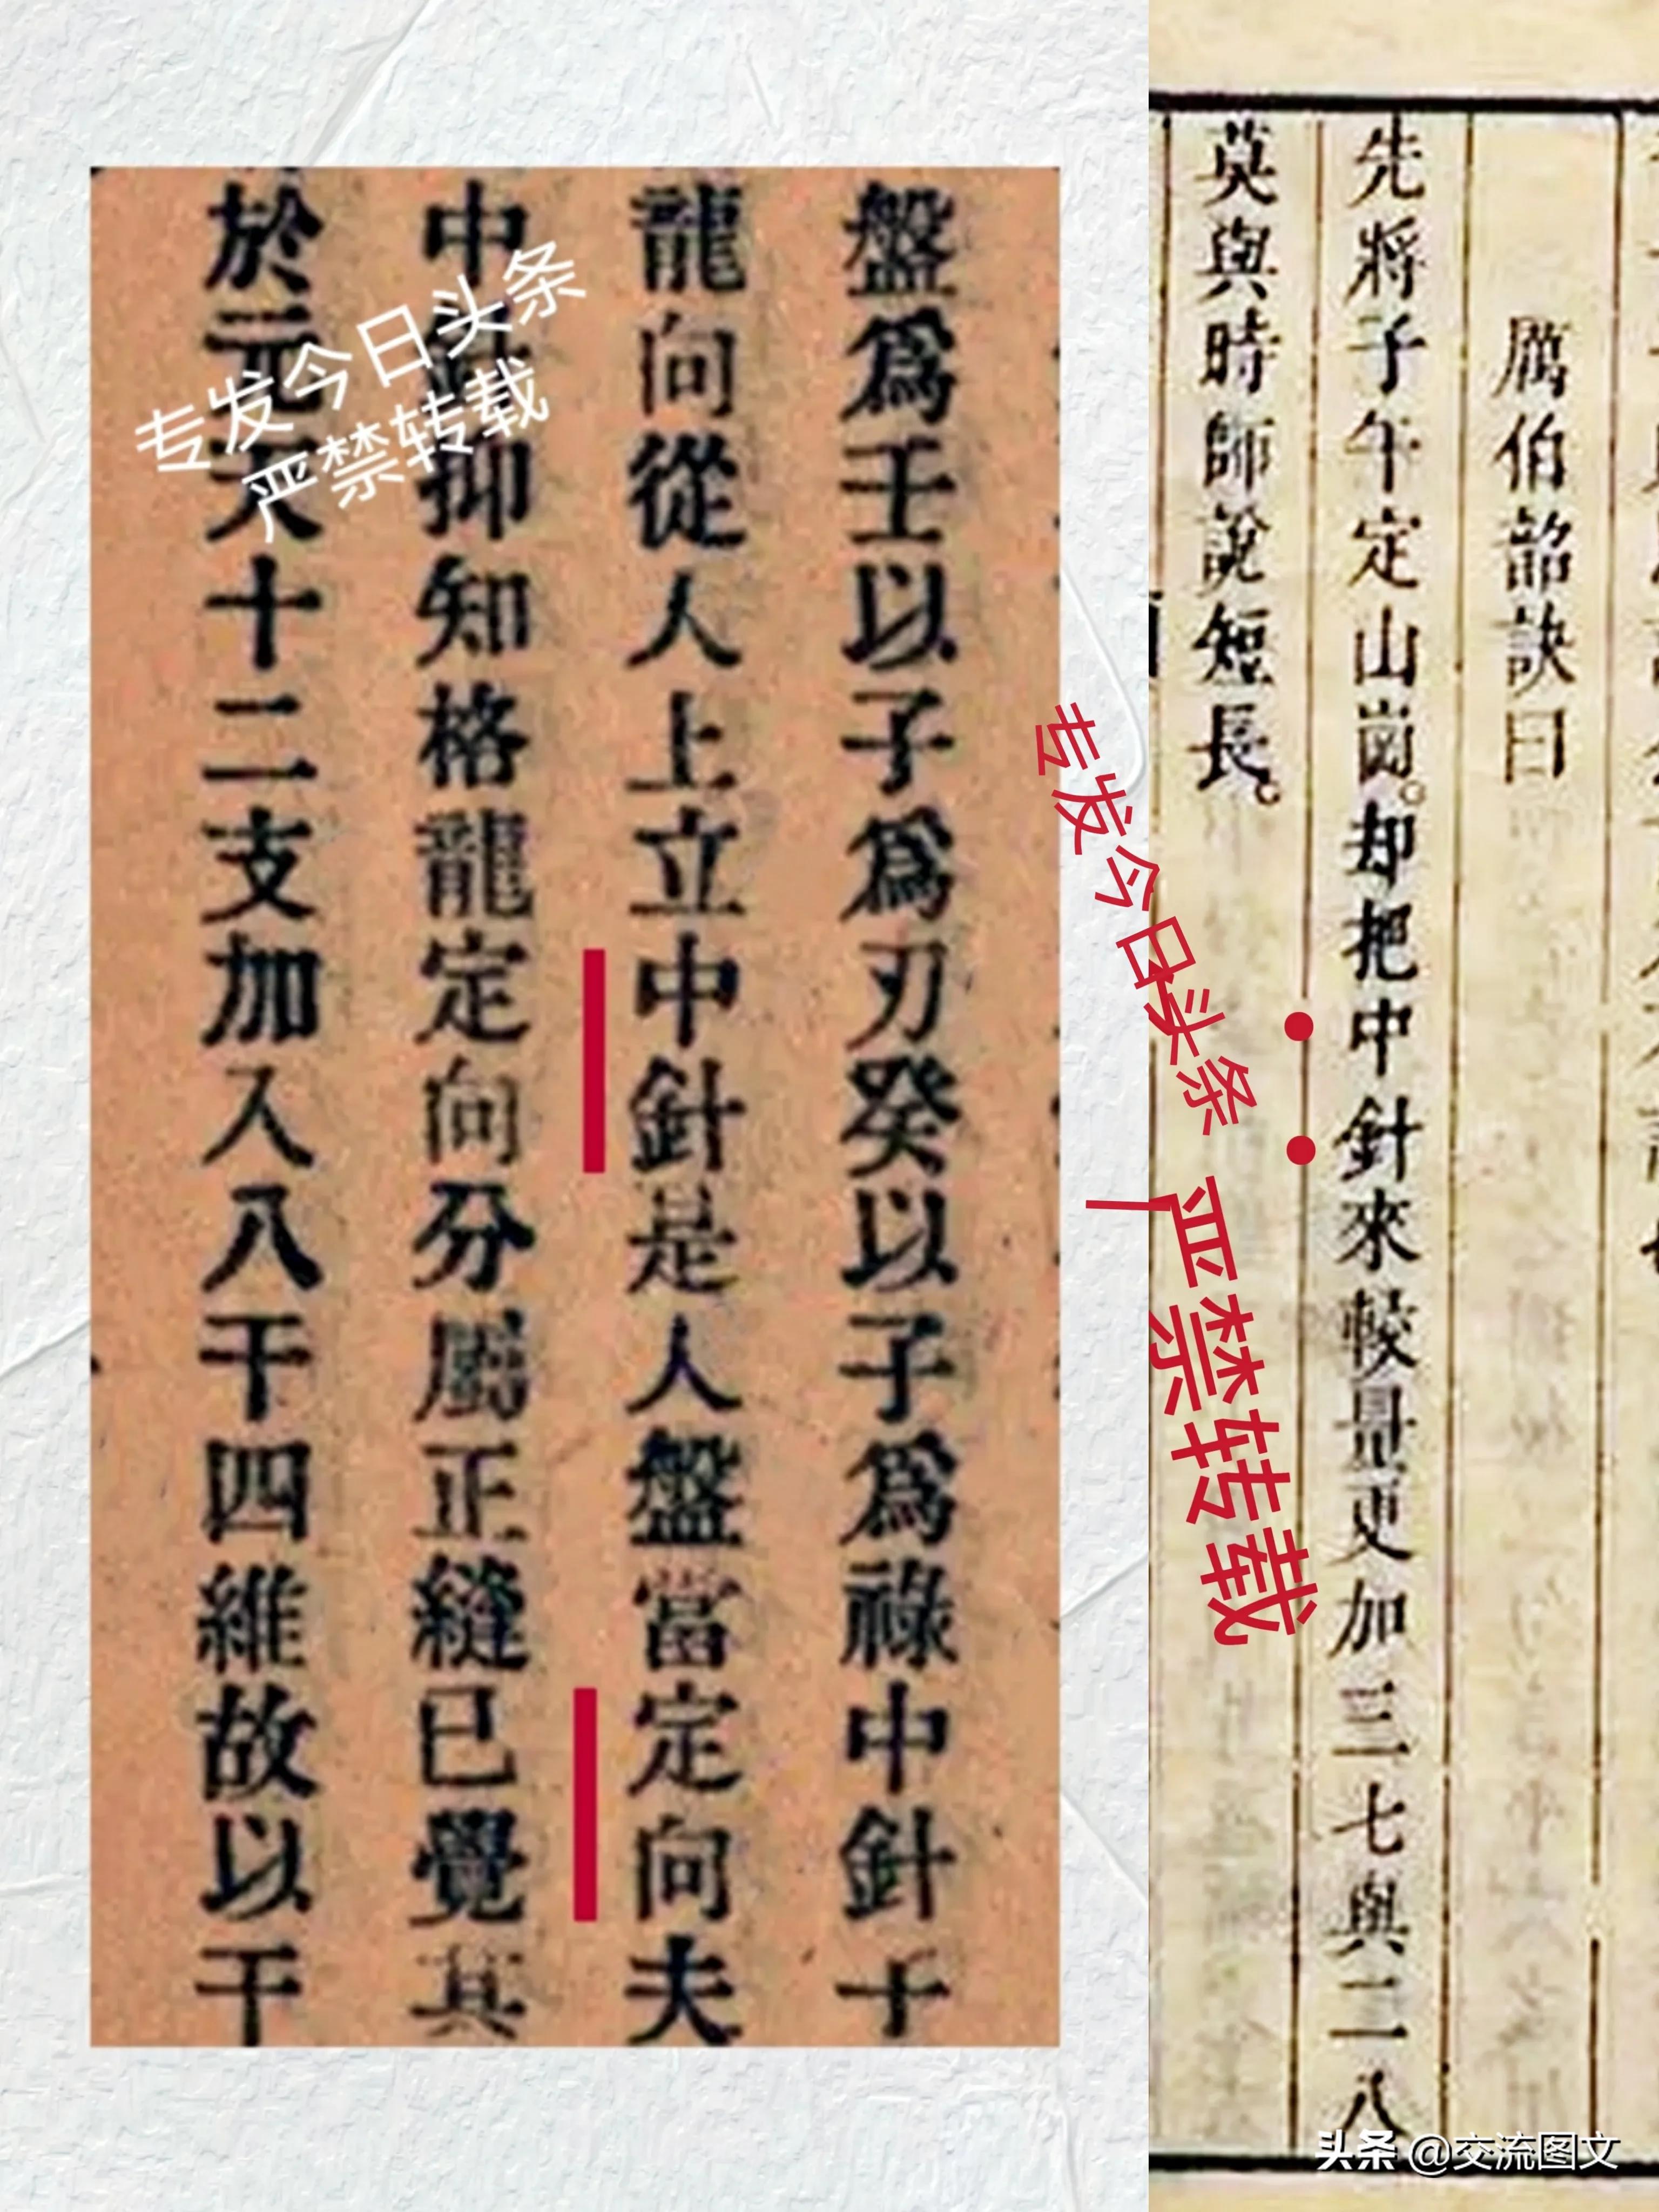 厲伯韶訣曰
先將子午定山崗。却把中針來較量更加三七與二八
莫與時師說短長。
盤爲壬以子爲刃癸以子爲祿中針十
龍向從人上立中針是人盤當定向夫
中針抑知格龍定向分屬正縫已覺其
於元天十二支加入八干四維故以干
专发今日头条
严禁转载
专发今日头条
严禁转载
头条 @交流图文